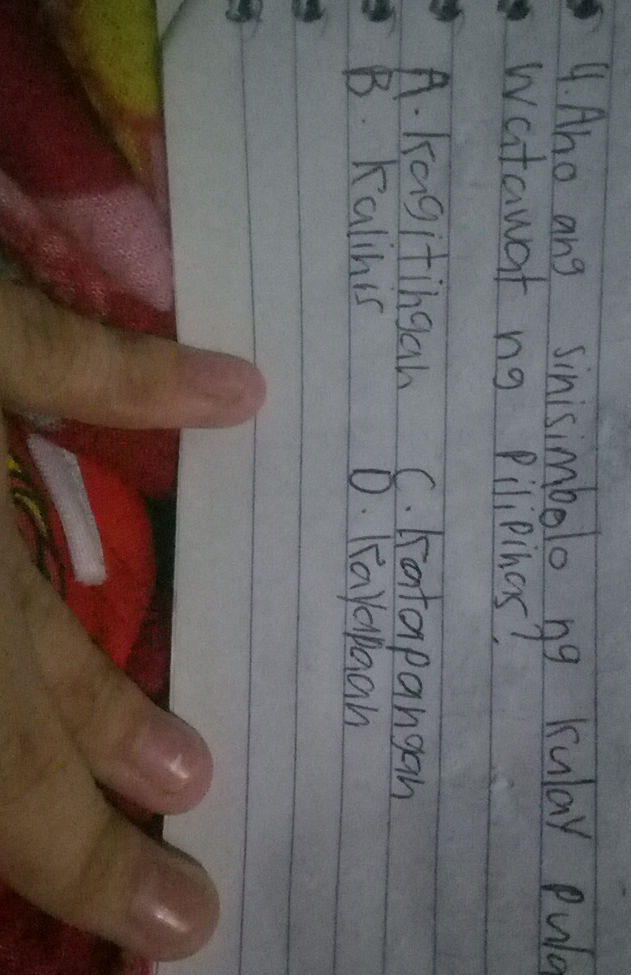 4. Ano ang sinisimbolo ng kulay pula
watawat ng Pilipinas?
A. Kagitingan C. Katapangan
B. Kalinis D. Kayapaan